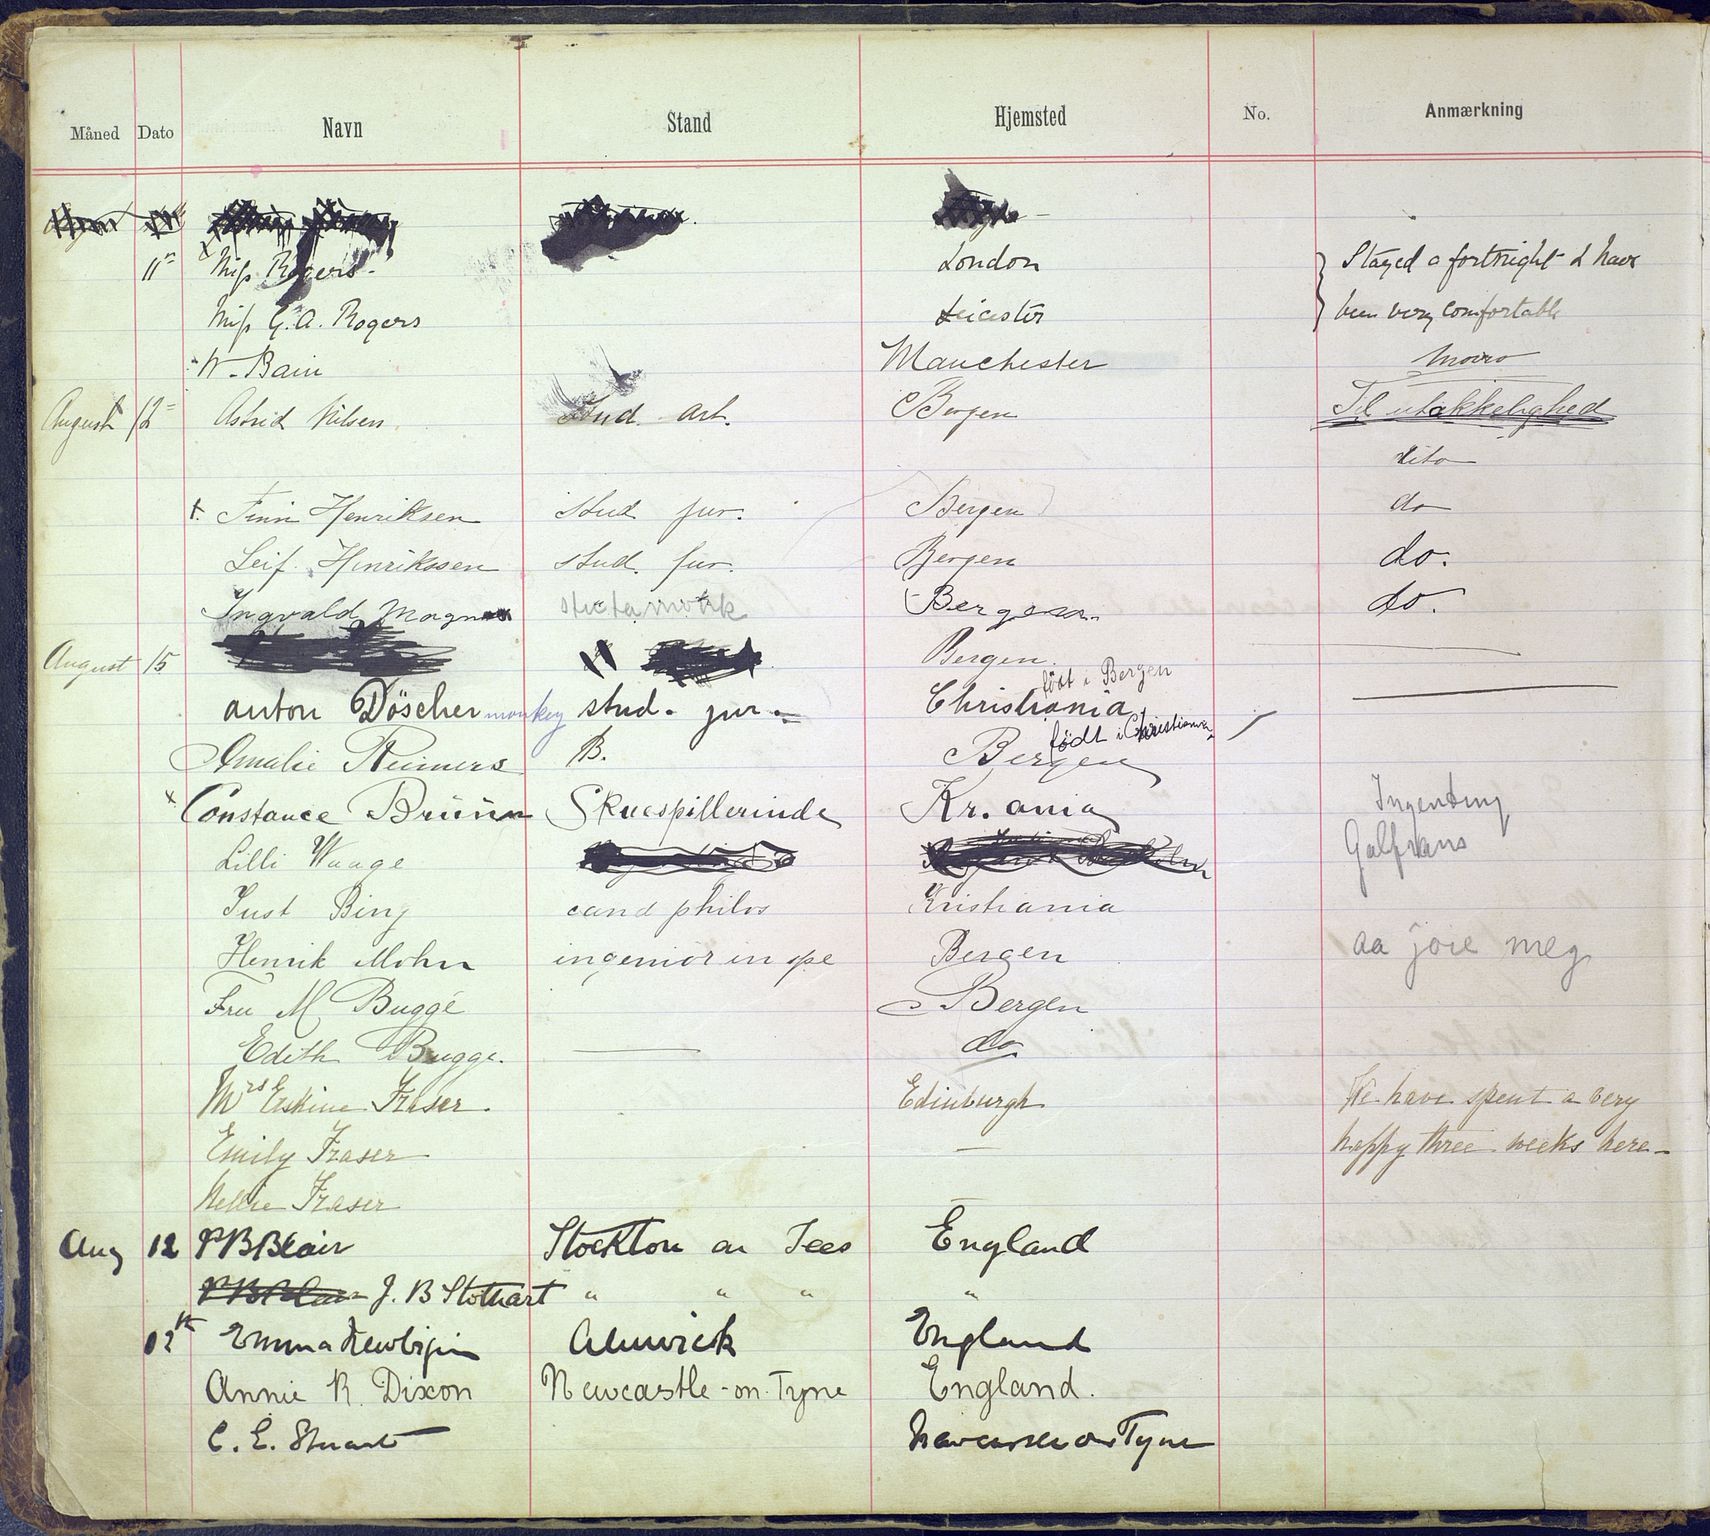 Måned Dato Navn Stand Hjemsted No. Anmærkning
11th Miss Rogers - London Stayed a fortnight & have
Miss G. A. Rogers Leicester been very comfortable
W. Bain Manchester
August 12 Astrid Nilsen Stud. art. Bergen Til utakkelighed
dito
Finn Henriksen Stud jur. Bergen do
Leif Henriksen stud. jur. Bergen do.
Ingvald Bergen do.
August 15 Bergen.
født i Bergen
anton Döscher monkey stud. jur. Christiania
født i Christiania
Amalie Reimers B. Bergen
Constance Bruun Skuespillerinde Kr.ania Ingenting
Lilli Waage
Just Bing cand philos Kristiania
Henrik Mohn ingeniör in spe Bergen aa joie meg
Fru M Bugge Bergen
Edith Bugge. do
Mrs Erskine Fraser. Edinburgh We have spent a very
Emily Fraser — happy three weeks here -
Nellie Fraser
Aug 12 P B Blair Stockton on Tees England
J. B Stothart " " " "
Emma Newbigin Alnwick England
Annie R. Dixon Newcastle-on-Tyne England.
C. E. Stuart Newcastle on Tyne